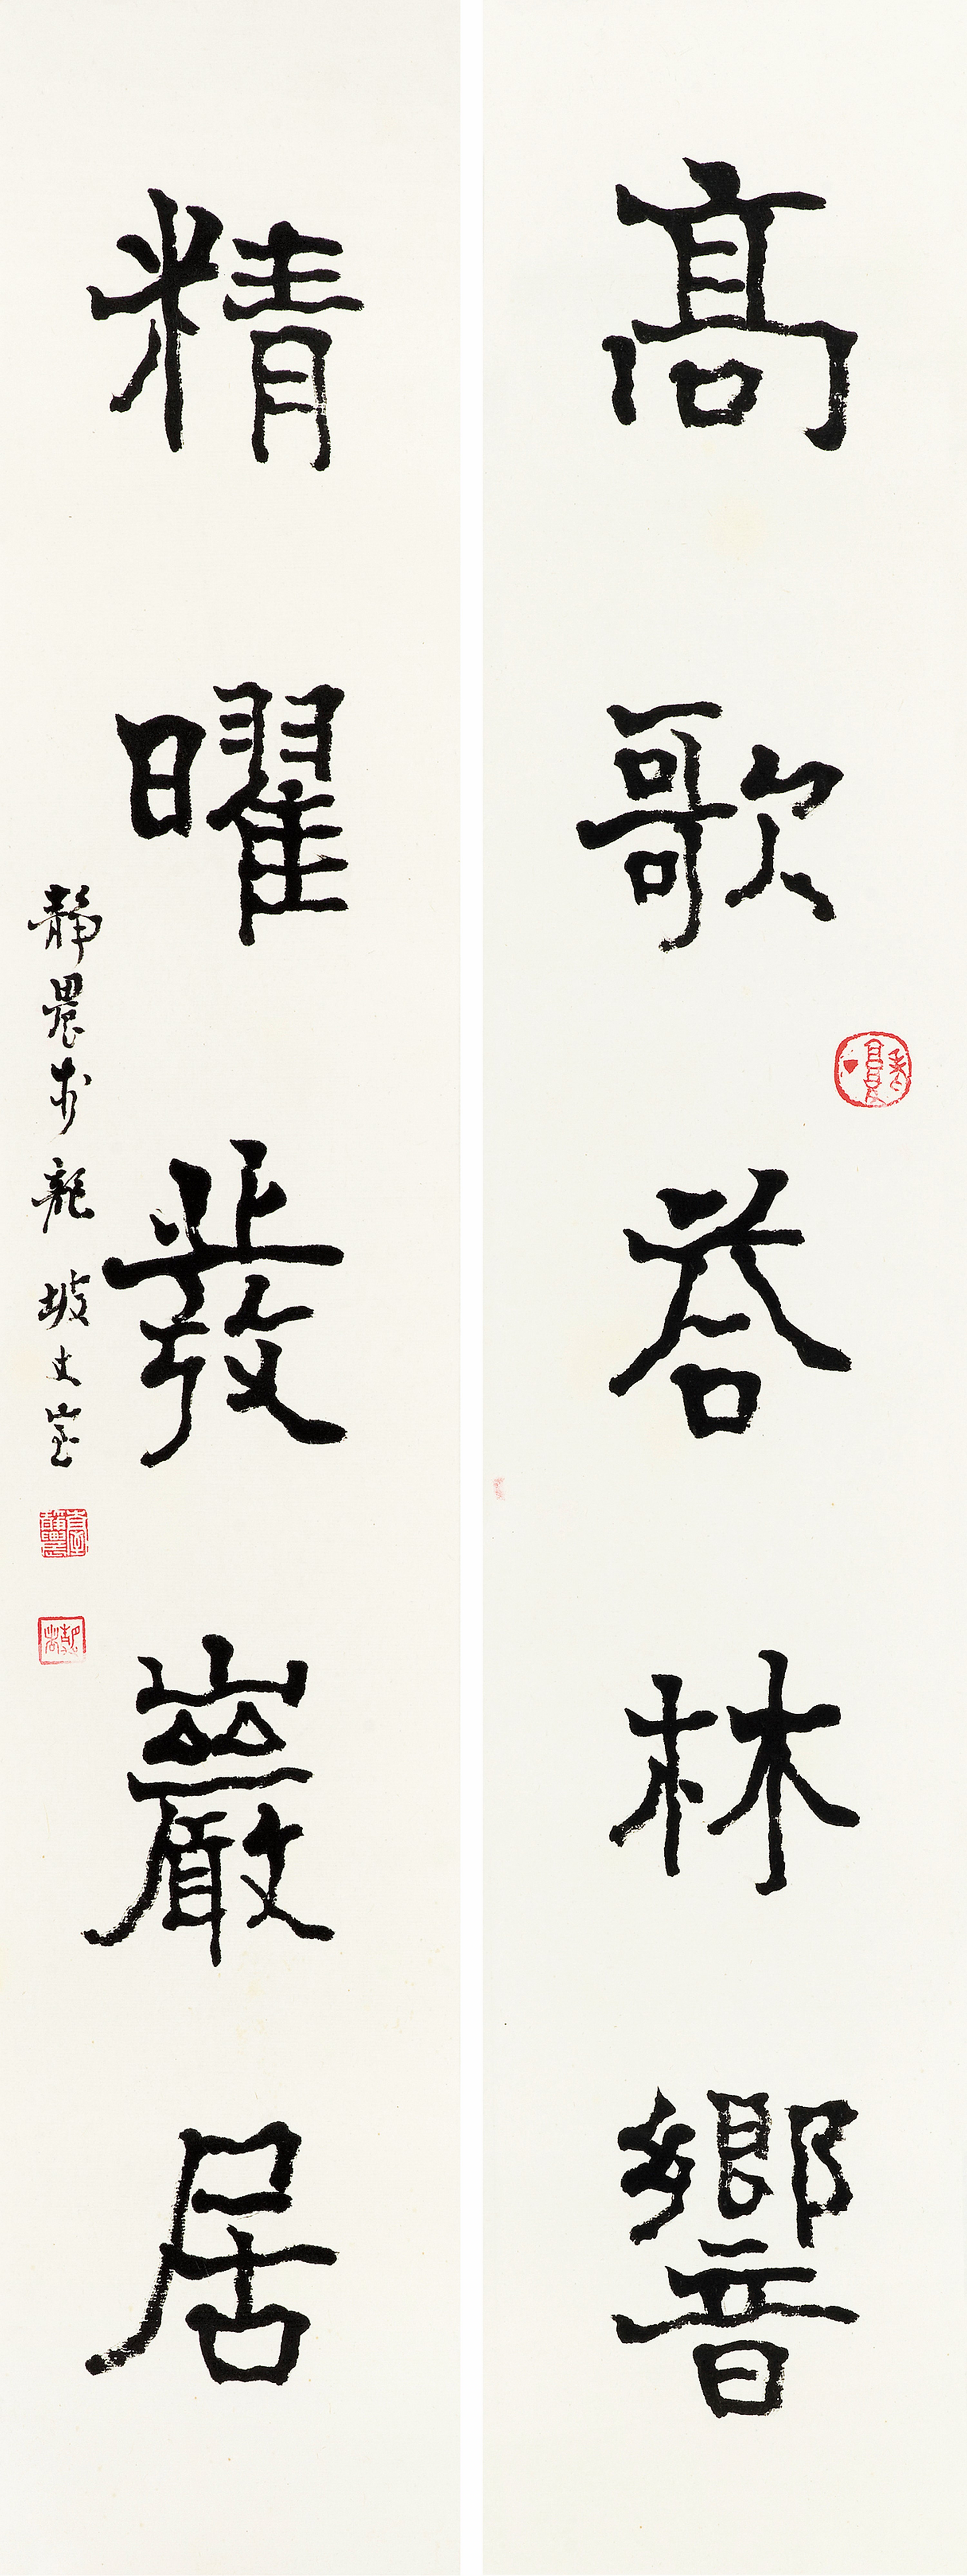 髙歌荅林響
精曜發巖居
靜農於龍坡丈室